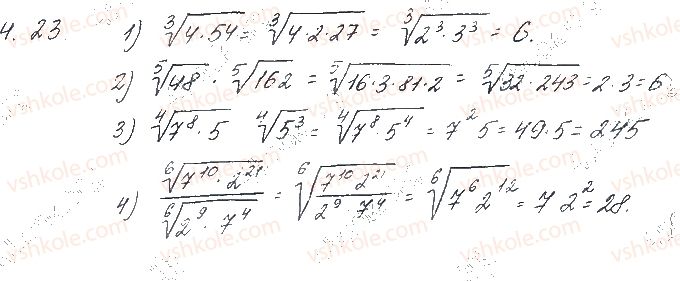 4.23 1) ∛(4·54) = ∛(4·2·27) = ∛(2³·3³) = 6.
2) ⁵√48 · ⁵√162 = ⁵√(16·3·81·2) = ⁵√(32·243) = 2·3 = 6
3) ⁴√(7⁸·5) ⁴√(5³) = ⁴√(7⁸ 5⁴) = 7² 5 = 49·5 = 245
4) ⁶√(7¹⁰·2²¹) / ⁶√(2⁹·7⁴) = ⁶√(7¹⁰ 2²¹ / 2⁹ 7⁴) = ⁶√(7⁶ 2¹²) = 7 2² = 28.
vshkole.com